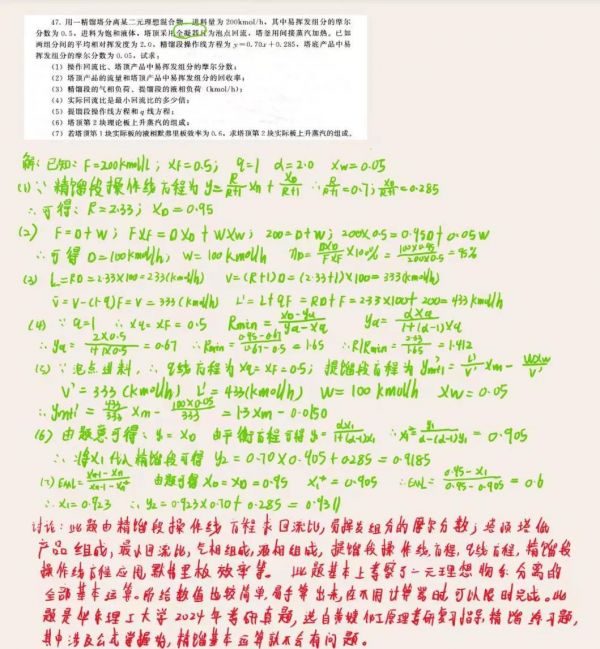 47. 用一精馏塔分离某二元理想混合物，进料量为 200kmol/h，其中易挥发组分的摩尔
分数为 0.5，进料为饱和液体，塔顶采用全凝器且为泡点回流，塔釜用间接蒸汽加热。已知
两组分间的平均相对挥发度为 2.0，精馏段操作线方程为 y=0.70x+0.285，塔底产品中易
挥发组分的摩尔分数为 0.05，试求：
（1）操作回流比、塔顶产品中易挥发组分的摩尔分数；
（2）塔顶产品的流量和塔顶产品中易挥发组分的回收率；
（3）精馏段的气相负荷、提馏段的液相负荷（kmol/h）；
（4）实际回流比是最小回流比的多少倍；
（5）提馏段操作线方程和 q 线方程；
（6）塔顶第 2 块理论板上升蒸汽的组成；
（7）若塔顶第 1 块实际板的液相默弗里板效率为 0.6，求塔顶第 2 块实际板上升蒸汽的组成。
解：已知：F=200kmol/h；XF=0.5； q=1 α=2.0 Xw=0.05
(1) ∵ 精馏段操作线方程为 y=R/(R+1) Xn + XD/(R+1) ∴ R/(R+1)=0.7；XD/(R+1)=0.285
∴ 可得：R=2.33；XD=0.95
(2) F=D+W；FXF=DXD+WXw；200=D+W；200×0.5=0.95D+0.05W
∴ 可得 D=100kmol/h；W=100kmol/h ηD=DXD/FXF×100%=100×0.95/200×0.5=95%
(3) L=RD=2.33×100=233(kmol/h) V=(R+1)D=(2.33+1)×100=333(kmol/h)
V̄=V-(1-q)F=V=333(kmol/h) L'=L+qF=RD+F=2.33×100+200=433kmol/h
(4) ∵ q=1 ∴ Xq=XF=0.5 Rmin=(XD-yq)/(yq-Xq) yq=αXq/(1+(α-1)Xq)
∴ yq=2×0.5/(1+1×0.5)=0.67 ∴ Rmin=(0.95-0.67)/(0.67-0.5)=1.65 ∴ R/Rmin=2.33/1.65=1.412
(5) ∵ 泡点进料，∴ q线方程为 Xq=XF=0.5；提馏段方程为 y'm+1=L'/V' Xm-WXw/V'
V'=333(kmol/h) L'=433(kmol/h) W=100kmol/h Xw=0.05
∴ y'm+1=433/333 Xm-100×0.05/333=1.3Xm-0.0150
(6) 由题意可得：y1=XD 由平衡方程可得 y1=αX1/(1+(α-1)X1) ∴ X1=y1/(α-(α-1)y1)=0.905
∴ 将X1代入精馏段可得 y2=0.70×0.905+0.285=0.9185
(7) EML=(Xn-1-Xn)/(Xn-1-Xn*) 由题可得 X0=XD=0.95 X1*=0.905 ∴ EML=(0.95-X1)/(0.95-0.905)=0.6
∴ X1=0.923 ∴ y2=0.923×0.70+0.285=0.9311
讨论：此题由精馏段操作线方程求回流比，易挥发组分的摩尔分数；塔顶塔低
产品组成，最小回流比，气相组成，液相组成，提馏段操作线方程，q线方程，精馏段
操作线方程应用，默弗里板效率等。 此题基本上考察了二元理想物系分离的
全部基本运算。所给数值比较简单，易手算出来，在不用计算器时可以限时完成。此
题是华东理工大学2024年考研真题，选自黄婕化工原理考研复习指导精馏练习题，
其中涉及公式掌握好，精馏基本运算就不会有问题。